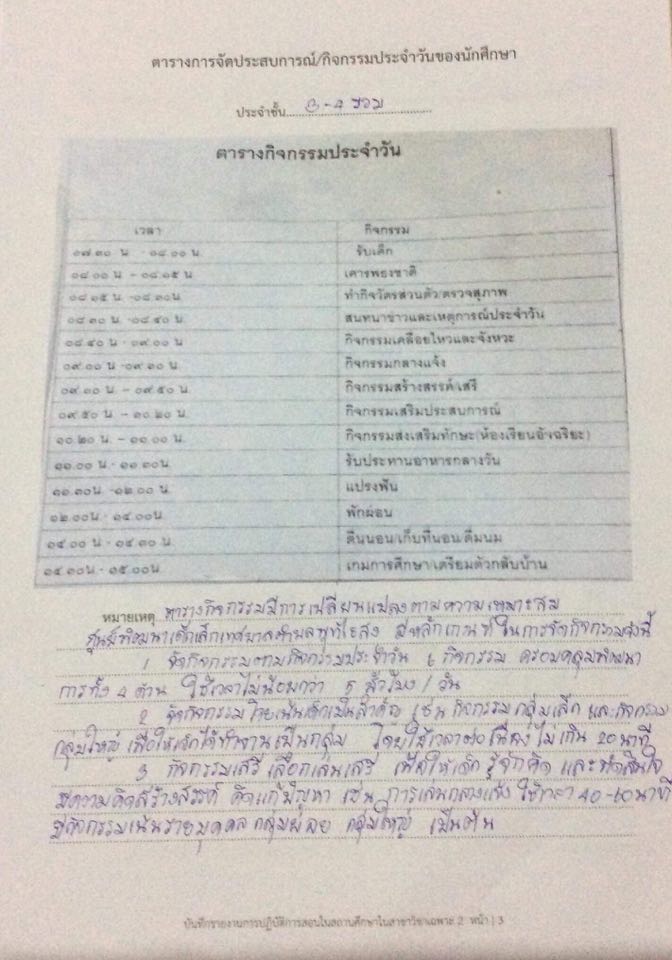 ตารางการจัดประสบการณ์/กิจกรรมประจำวันของนักศึกษา
ประจำชั้น 3-4 ขวบ
ตารางกิจกรรมประจำวัน
เวลา กิจกรรม
๐๗.๓๐ น. - ๐๘.๐๐ น. รับเด็ก
๐๘.๐๐ น - ๐๘.๑๕ น. เคารพธงชาติ
๐๘.๑๕ น. -๐๘.๓๐น. ทำกิจวัตรส่วนตัว/ตรวจสุภาพ
๐๘.๓๐ น. -๐๘.๔๐ น. สนทนาข่าวและเหตุการณ์ประจำวัน
๐๘.๔๐น - ๐๙.๐๐น กิจกรรมเคลื่อนไหวและจังหวะ
๐๙.๐๐ น -๐๙.๓๐ น. กิจกรรมกลางแจ้ง
๐๙.๓๐ น. - ๐๙.๕๐ น. กิจกรรมสร้างสรรค์/เสรี
๐๙.๕๐ น - ๑๐.๒๐ น. กิจกรรมเสริมประสบการณ์
๑๐.๒๐ น. - ๑๑.๐๐ น. กิจกรรมส่งเสริมทักษะ(ห้องเรียนอัจฉริยะ)
๑๑.๐๐ น. - ๑๑.๓๐น. รับประทานอาหารกลางวัน
๑๑.๓๐น. -๑๒.๐๐ น. แปรงฟัน
๑๒.๐๐น. - ๑๔.๐๐น. พักผ่อน
๑๔.๐๐ น. - ๑๔.๓๐ น. ตื่นนอน/เก็บที่นอน/ดื่มนม
๑๔.๓๐น. - ๑๕.๐๐น. เกมการศึกษา/เตรียมตัวกลับบ้าน
หมายเหตุ ตารางกิจกรรมมีการเปลี่ยนแปลงตามความเหมาะสม
ศูนย์พัฒนาเด็กเล็กเทศบาลตำบลพุทไธสง มีหลักเกณฑ์ในการจัดกิจกรรมดังนี้
1 จัดกิจกรรมตามกิจกรรมประจำวัน 6 กิจกรรม ครอบคลุมพัฒนา
การทั้ง 4 ด้าน ใช้เวลาไม่น้อยกว่า 5 ชั่วโมง / วัน
2 จัดกิจกรรมโดยเน้นเด็กเป็นสำคัญ เช่น กิจกรรมกลุ่มเล็ก และกิจกรรม
กลุ่มใหญ่ เพื่อให้เด็กได้ทำงานเป็นกลุ่ม โดยใช้เวลาต่อเนื่องไม่เกิน 20 นาที
3 กิจกรรมเสรี เลือกเล่นเสรี เพื่อให้เด็ก รู้จักคิด และตัดสินใจ
มีความคิดสร้างสรรค์ คิดแก้ปัญหา เช่น การเล่นกลางแจ้ง ใช้เวลา 40-60 นาที
มีกิจกรรมเน้นรายบุคคล กลุ่มย่อย กลุ่มใหญ่ เป็นต้น
บันทึกรายงานการปฏิบัติการสอนในสถานศึกษาในสาขาวิชาเฉพาะ 2 หน้า | 3